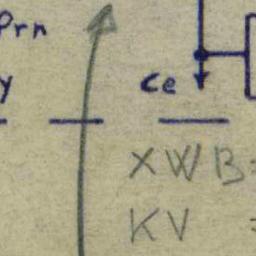 Prn
y
Ce
XWB=
KV =